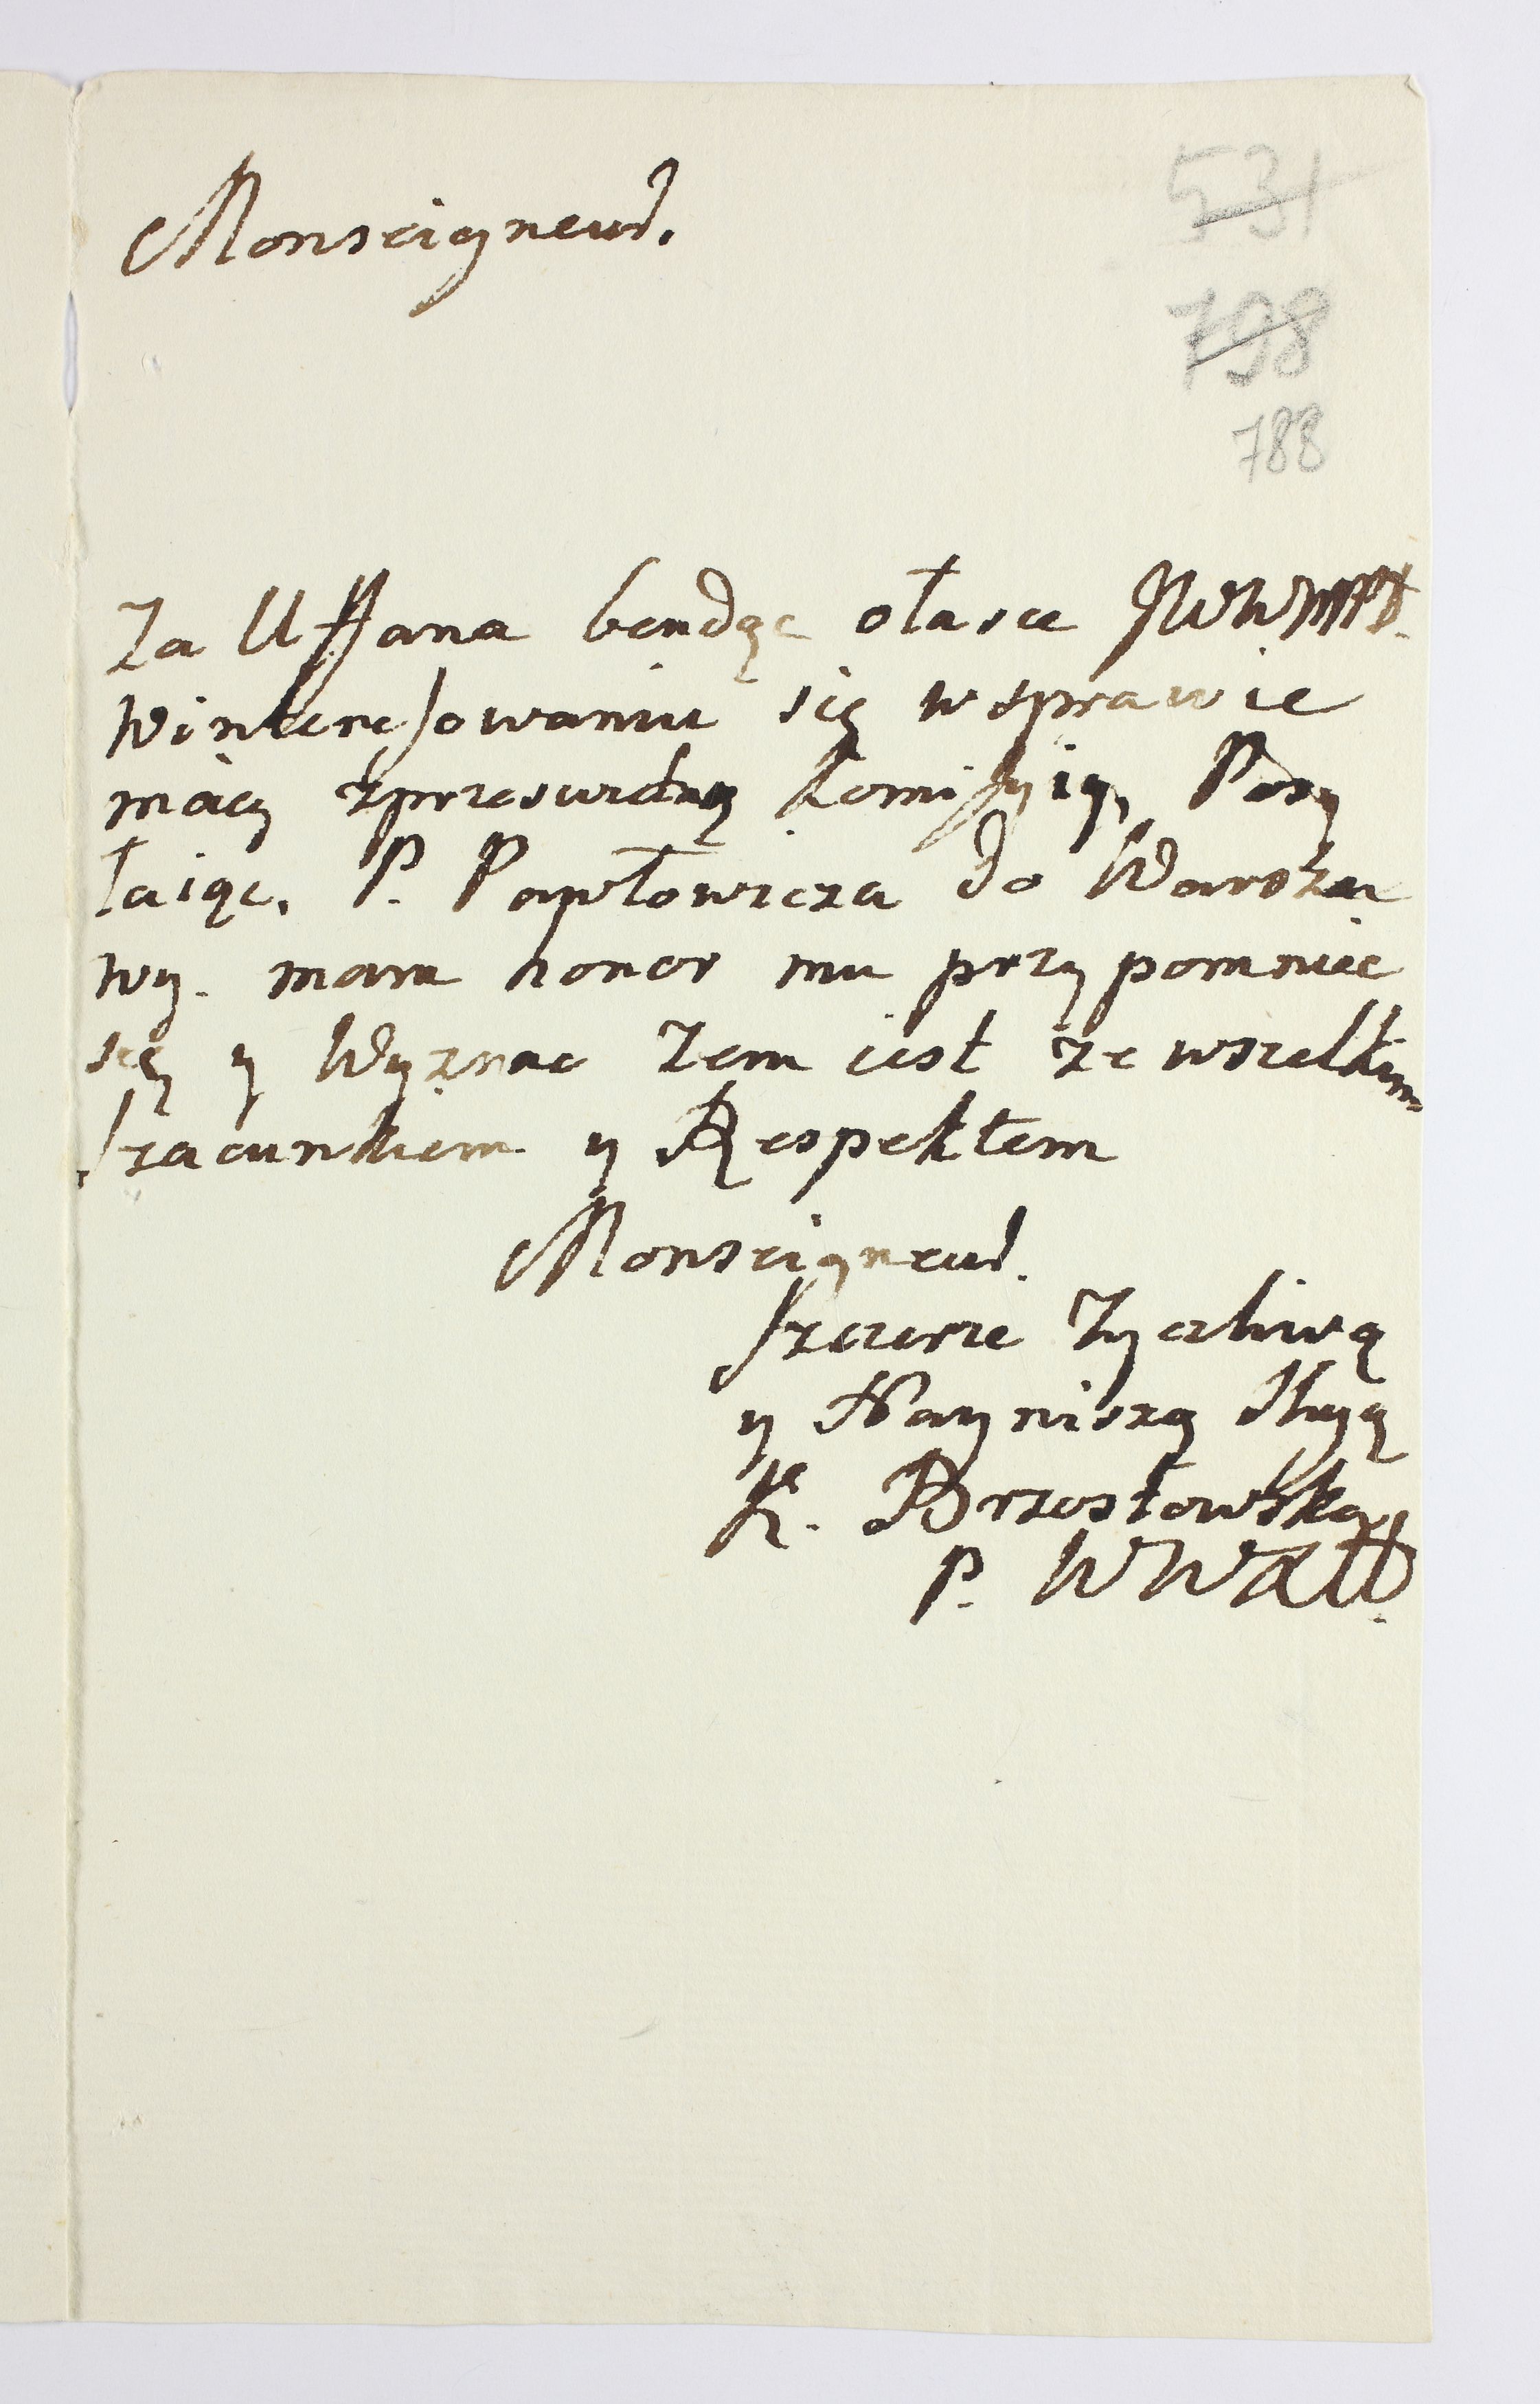 Monseigneur.
531
798
788
Za Uffana bendąc ołasce JWWMPD.
Winteressowaniu się wsprawie
maiey zprzeswietną Komissyią, Posy
łaiąc. P. Pawłowicza do Warsza
wy. mam honor mu przypomniec
się y Wyznac Zem iest ze wszelkim
szacunkiem y Respektem
Monseigneur.
szczerze Zyczliwą
y Nayniszą sługą
K. Brzostowska
P. WWXLtt